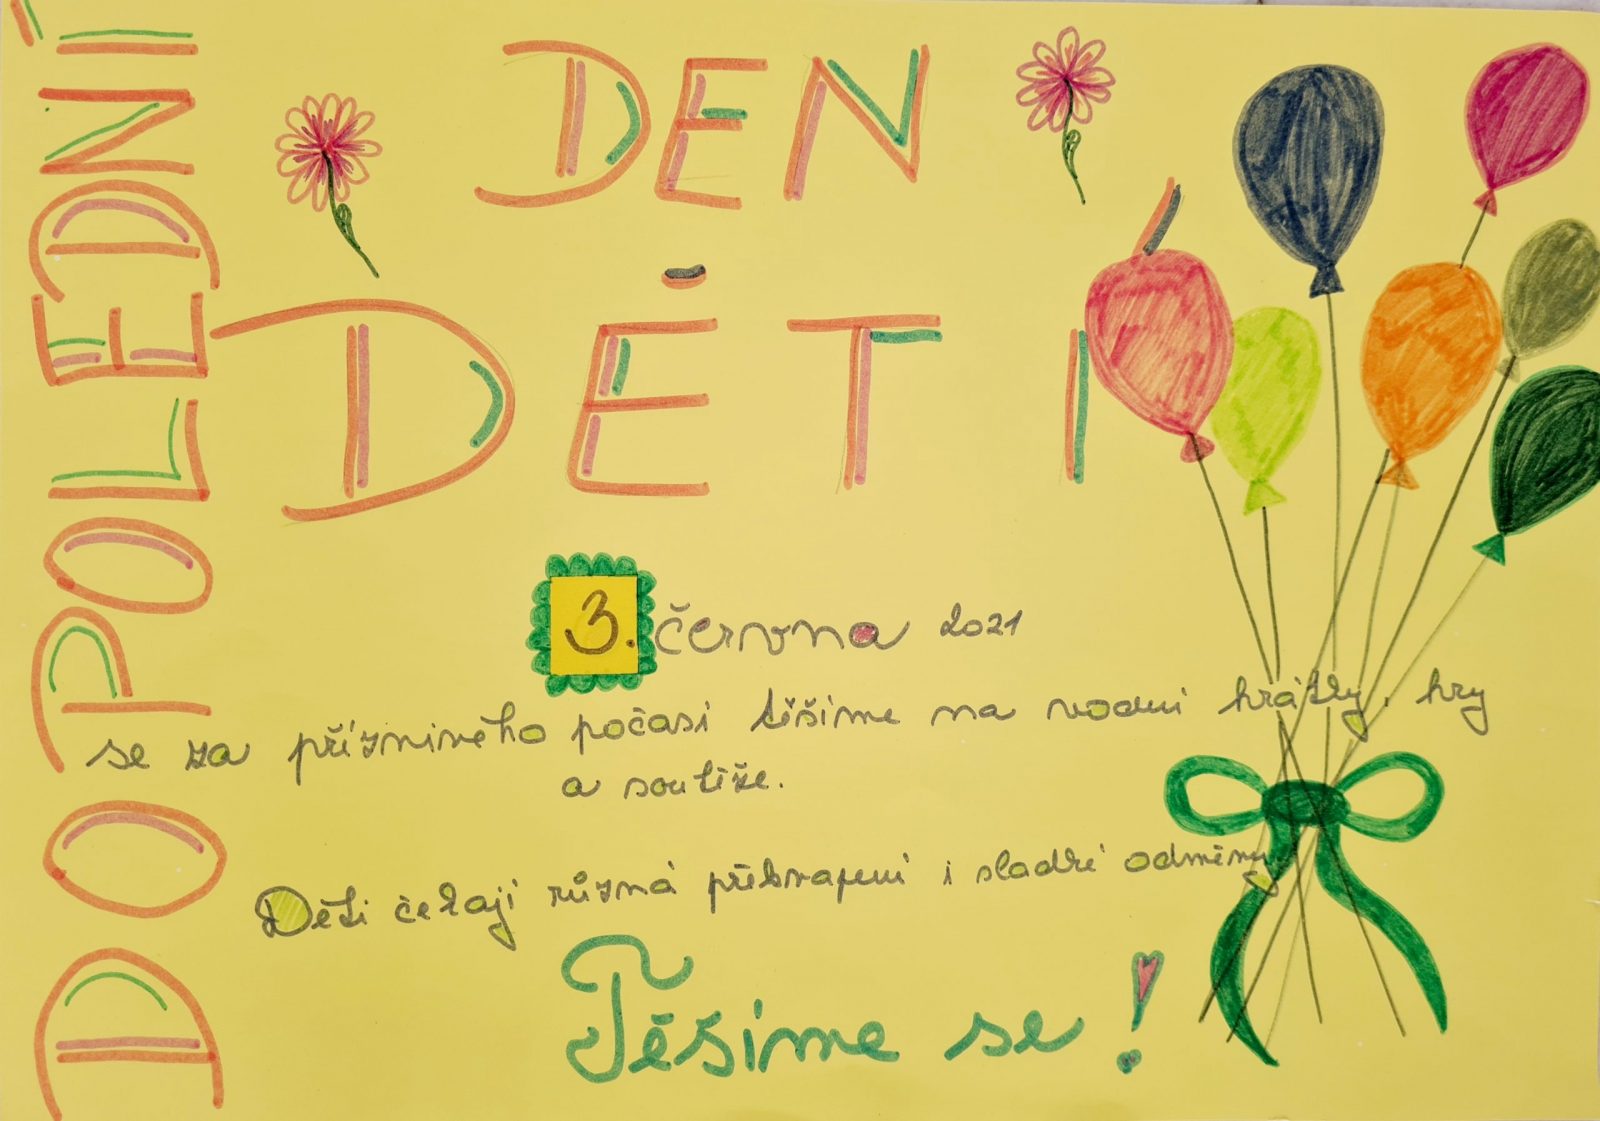 DOPOLEDNÍ
DEN
DĚTÍ
3. června 2021
se za příznivého počasí těšíme na vodní hrátky, hry
a soutěže.
Děti čekají různá překvapení i sladké odměny
Těšíme se!